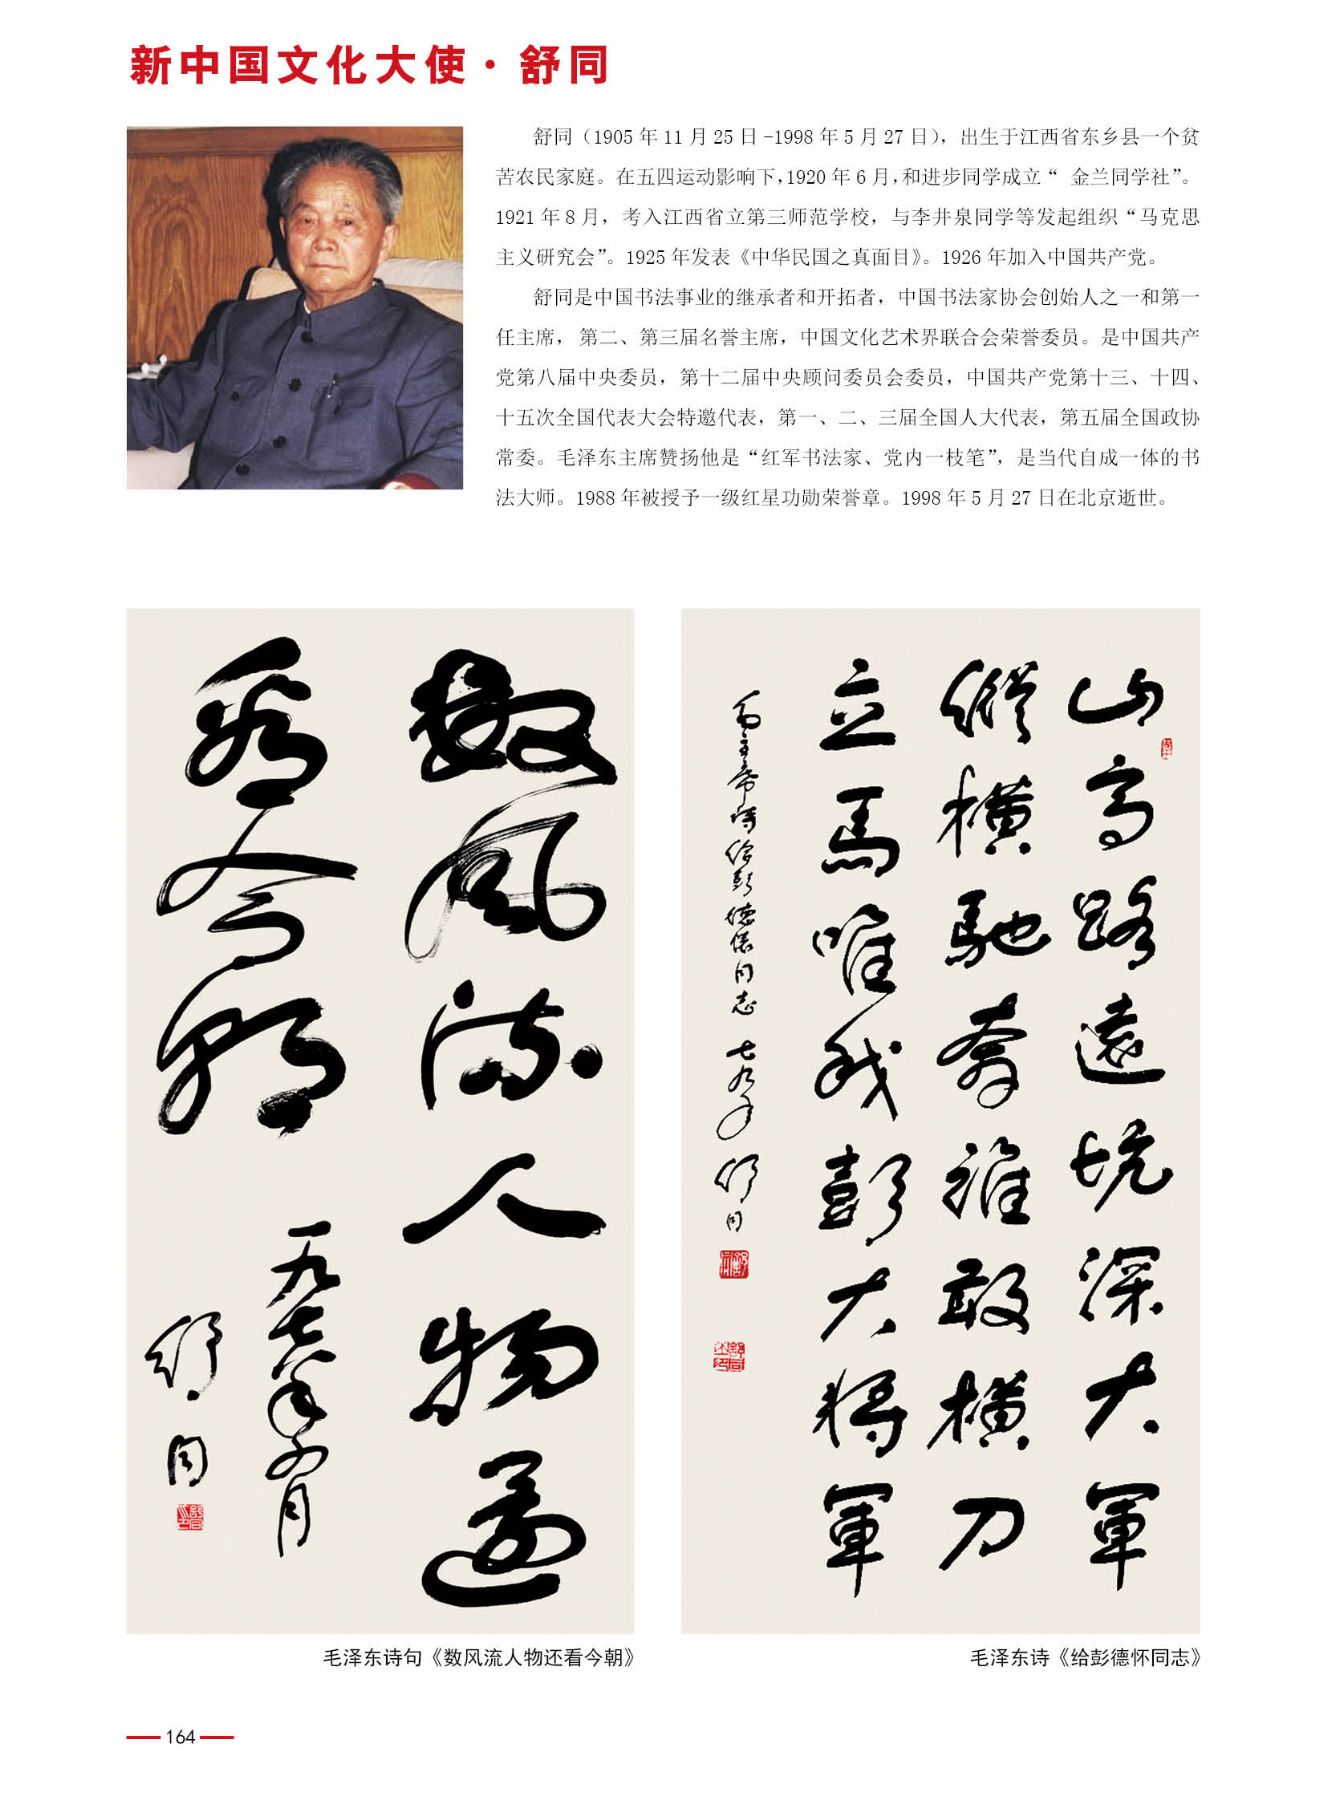 新中国文化大使·舒同
舒同（1905年11月25日-1998年5月27日），出生于江西省东乡县一个贫
苦农民家庭。在五四运动影响下，1920年6月，和进步同学成立“ 金兰同学社”。
1921年8月，考入江西省立第三师范学校，与李井泉同学等发起组织“马克思
主义研究会”。1925年发表《中华民国之真面目》。1926年加入中国共产党。
舒同是中国书法事业的继承者和开拓者，中国书法家协会创始人之一和第一
任主席， 第二、第三届名誉主席，中国文化艺术界联合会荣誉委员。是中国共产
党第八届中央委员，第十二届中央顾问委员会委员，中国共产党第十三、十四、
十五次全国代表大会特邀代表，第一、二、三届全国人大代表，第五届全国政协
常委。毛泽东主席赞扬他是“红军书法家、党内一枝笔”，是当代自成一体的书
法大师。1988年被授予一级红星功勋荣誉章。1998年5月27日在北京逝世。
数风流人物还
看今朝
一九七八年九月
舒同
毛泽东诗句《数风流人物还看今朝》
山高路遠坑深大軍
縱横馳奔誰敢横刀
立馬唯我彭大将軍
毛主席诗给彭德怀同志 七九年 舒同
毛泽东诗《给彭德怀同志》
164